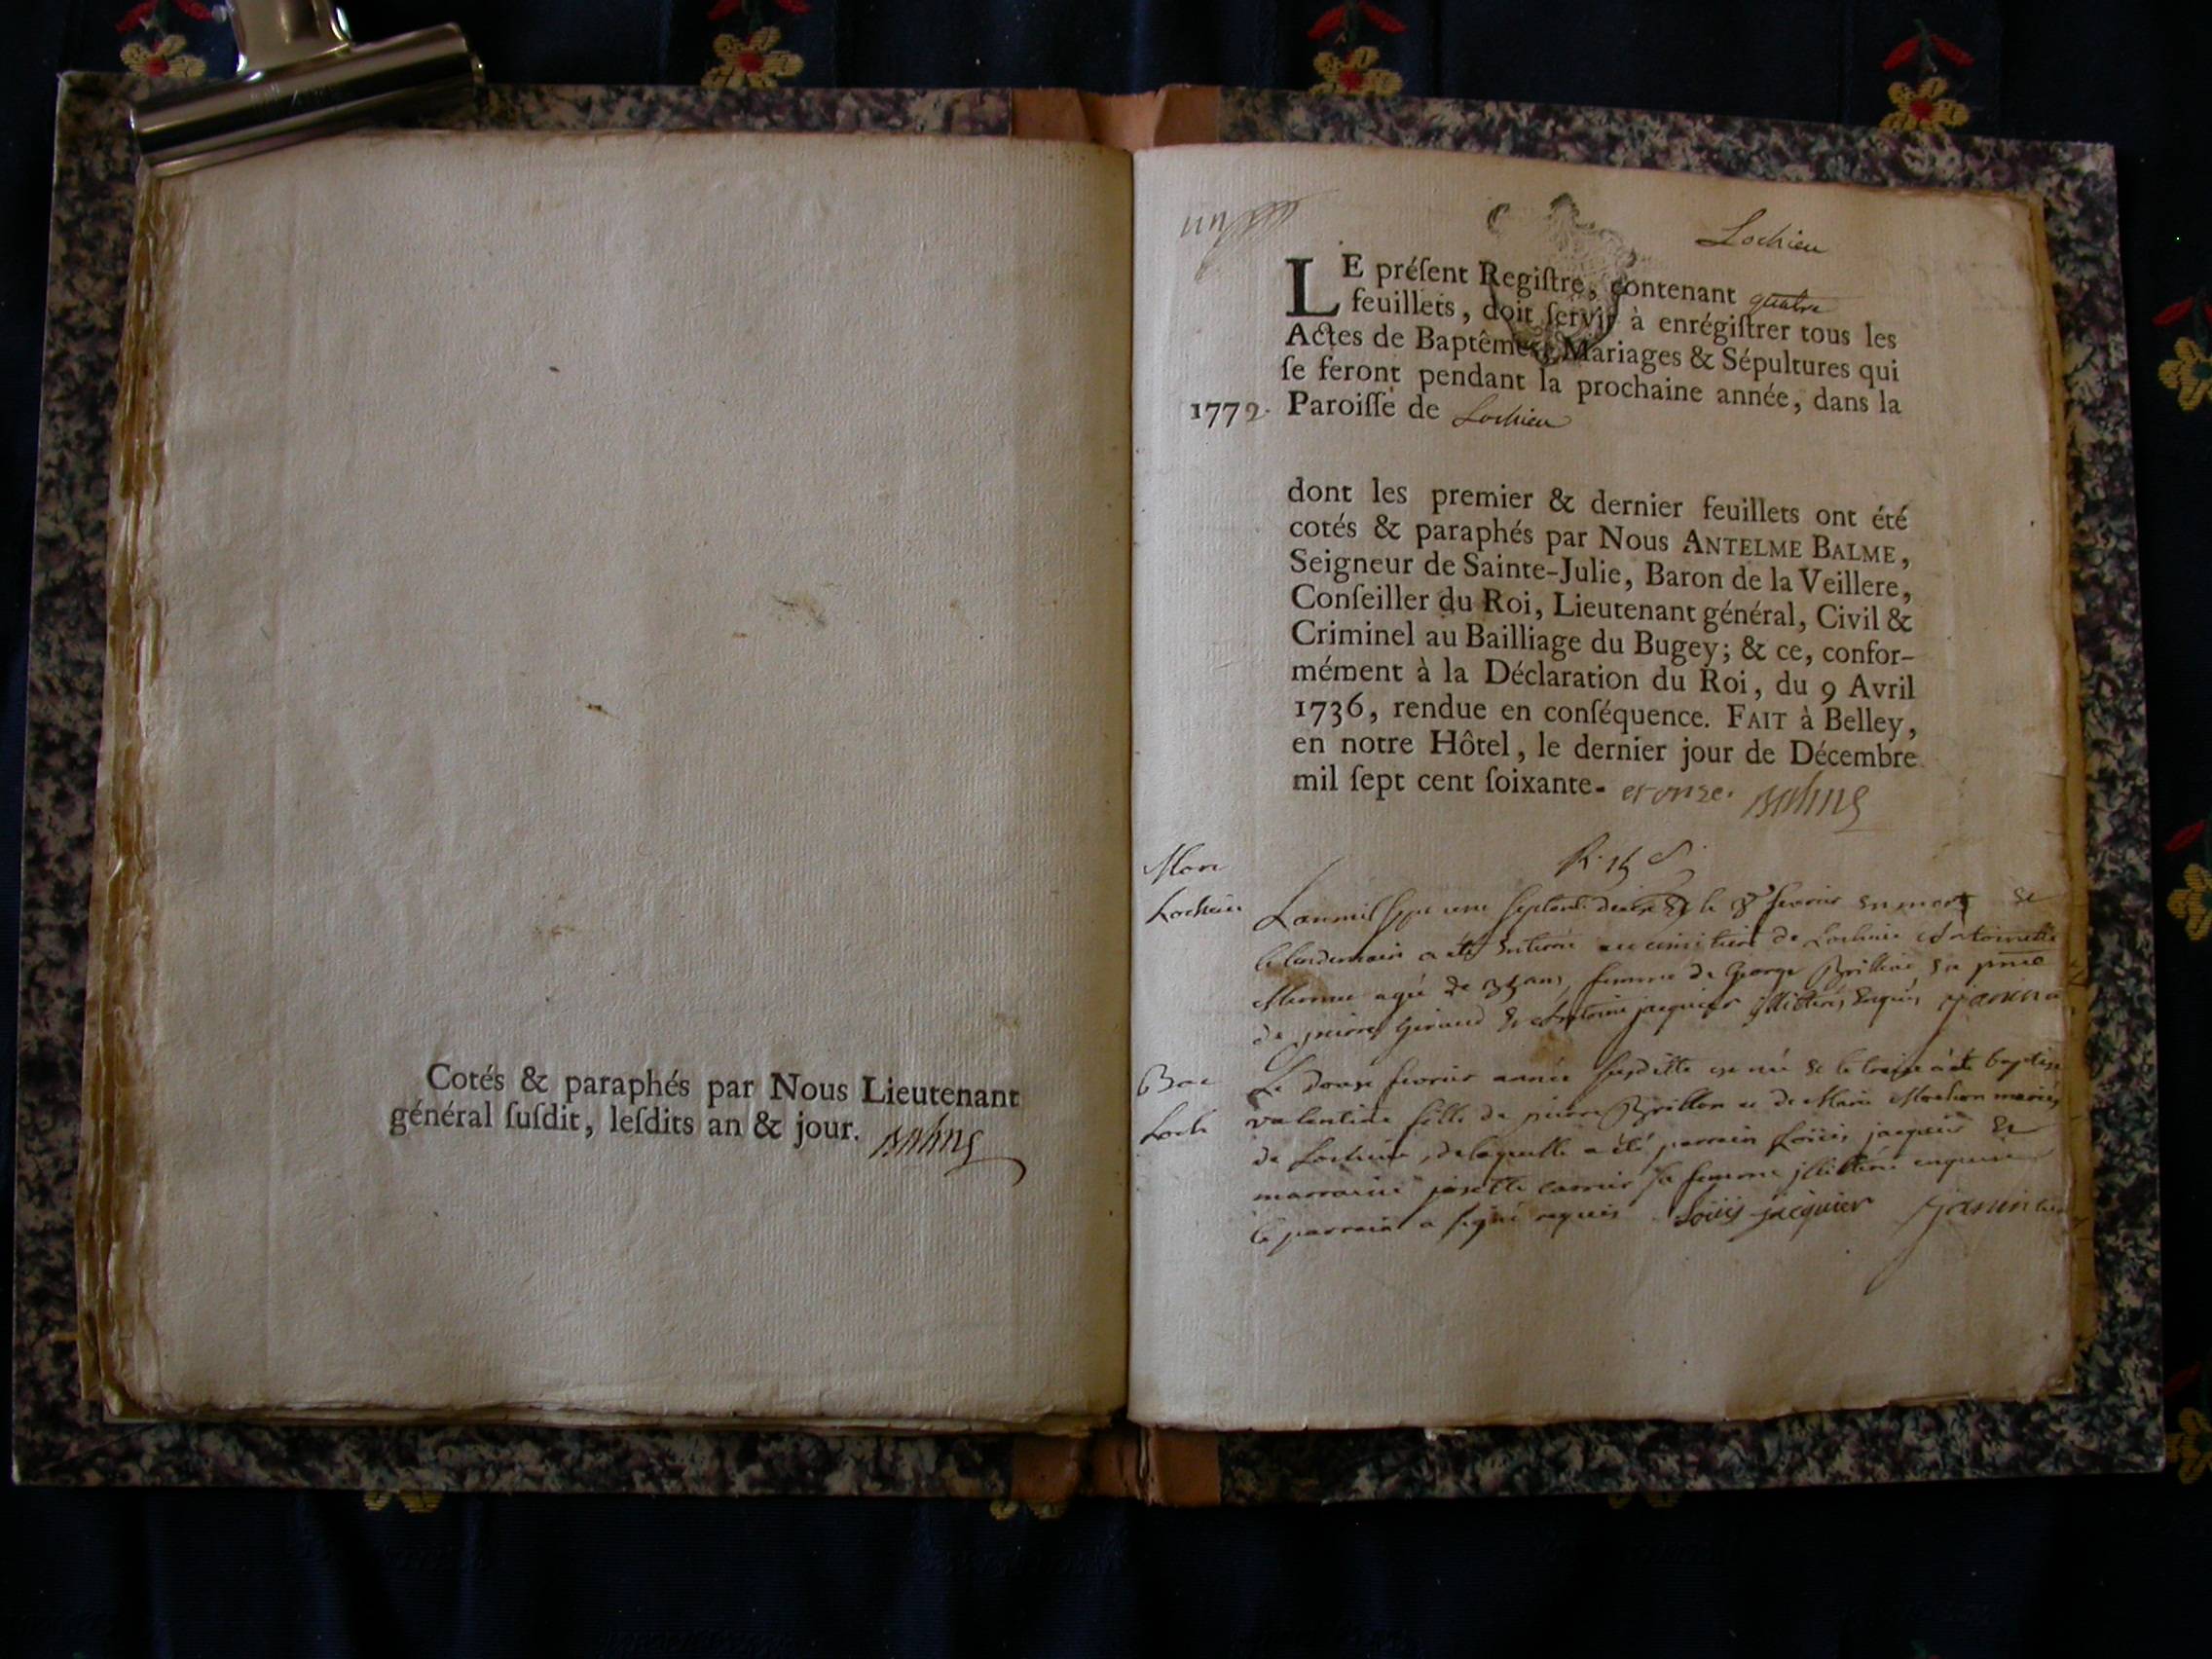 Cotés & paraphés par Nous Lieutenant
général ſuſdit, leſdits an & jour. Balme
un
Lochieu
LE préſent Regiſtre, contenant quatre
feuillets, doit ſervir à enrégiſtrer tous les
Actes de Baptêmes, Mariages & Sépultures qui
ſe feront pendant la prochaine année, dans la
1772. Paroiſſe de Lochieu
dont les premier & dernier feuillets ont été
cotés & paraphés par Nous ANTELME BALME,
Seigneur de Sainte-Julie, Baron de la Veillere,
Conſeiller du Roi, Lieutenant général, Civil &
Criminel au Bailliage du Bugey; & ce, confor-
mément à la Déclaration du Roi, du 9 Avril
1736, rendue en conſéquence. FAIT à Belley,
en notre Hôtel, le dernier jour de Décembre
mil ſept cent ſoixante- et onze. Balme
Mort
Lochieu L'an mil sept cent septante deux le fevrier en mort et
le lendemain a été enterré au cimitiere de Lochieu Antoinette
agée de 35 ans, femme de George Brillon en
de pierre Giraud & Antoine jacquier illitérés enquis janin
Bat Le douze fevrier année susditte est né & le treize a été baptisé
Loch valentine fille de pierre Brillon et de Marie Mochon mariés
de Lochieu, de laquelle a été parrain Loüis jacquier &
marraine josette carrier sa femme illitérée enquise
le parrain a signé requis Loüis jacquier janin